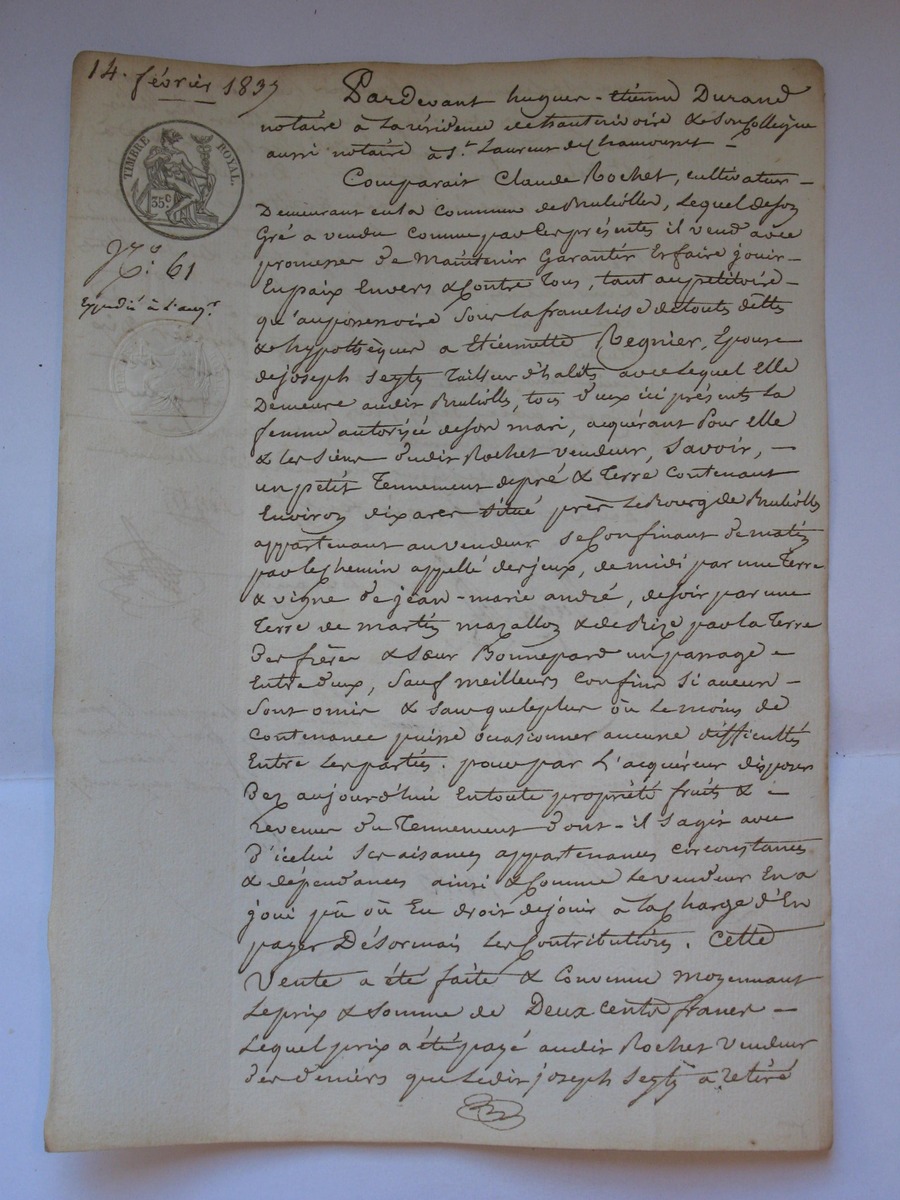 14. février 1837
TIMBRE ROYAL.
35 c.
N.o 61
Expédié à l'acq.r
Pardevant hugues-étienne Durand
notaire à la résidence de hauterivoire & son Collègue
aussi notaire à St. Laurent de Chamousset -
Comparait Claude Rochet, cultivateur -
Demeurant en la Commune de Brulliolles, Lequel de son
Gré a vendu comme par les présentes il vend avec
promesse de Maintenir Garantir Et faire jouir -
En paix Envers & Contre Tous, tant au petitoire -
qu'au possessoire sous la franchise de touts dettes
& hypothèques a Etiennette Regnier, Epouse
de joseph Tailleur d'habits avec Lequel elle
Demeure audit Brulliolles, tous deux ici présents la
femme autorisée de son mari, acquérant Pour elle
& les siens dudit Rochet vendeur, Savoir, -
un petit Tennement de pré & Terre contenant
Environ dix ares situé près Le Bourg de Brulliolles
appartenant au vendeur se Confinant de matin
par le chemin appellé des jeux, de midi par une Terre
& vigne de jean-marie andré, de soir par une
Terre de martin mazallon & de Bize par la Terre
Des frères & sœur Bonnepard un passage -
Entre deux, sauf meilleurs confins si aucuns -
sont omis & sans que le plus où Le moins de
contenance puisse occasionner aucune difficultés
Entre Les parties. pour par L'acquéreur disposer
Dez aujourd'hui En toute propriété fruits & -
revenus du Tennement dont-il s'agit avec
D'icelui ses aisances appartenances circonstances
& dépendances ainsi & Comme Le vendeur En a
joui pû où Eu droit de jouir à la Charge d'En
payer Désormais Les Contributions. Cette
Vente a été faite & Convenue moyennant
Le prix & somme de Deux cents francs -
Lequel prix a été payé audit Rochet Vendeur
des deniers que Ledit joseph a retiré